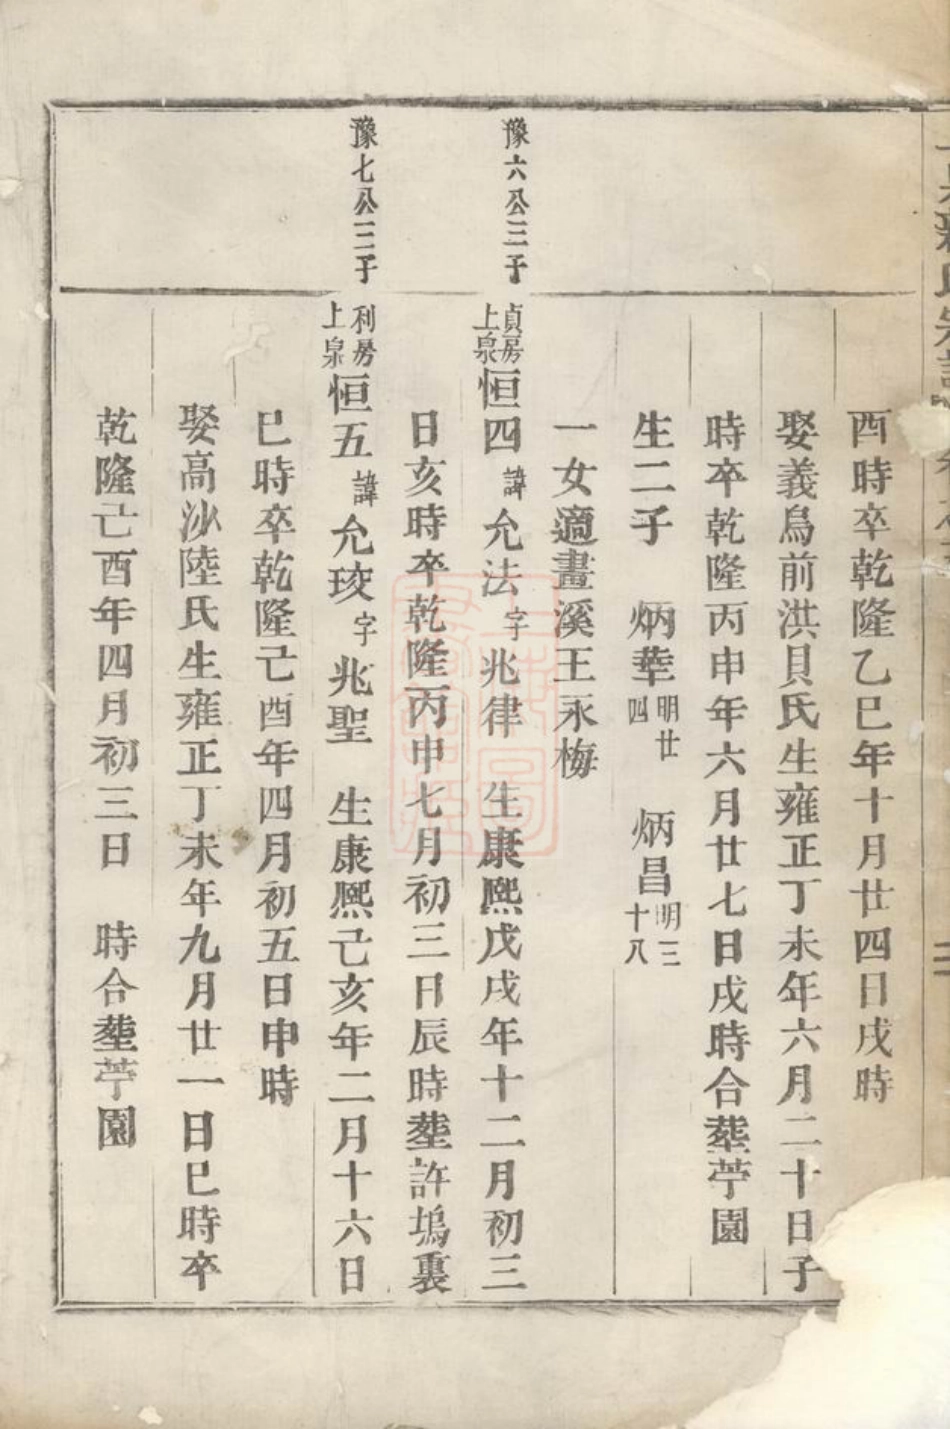 酉時卒乾隆乙巳年十月廿四日戌時
娶義烏前洪貝氏生雍正丁未年六月二十日子
時卒乾隆丙申年六月廿七日戌時合塟苧園
生二子 炳㚖明廿四 炳昌明三十八
一女適畫溪王永梅
豫六公三子
貞房上泉恒四諱允法字兆律 生康熙戊戌年十二月初三
日亥時卒乾隆丙申七月初三日辰時塟許塢裏
豫七公三子
利房上泉恒五諱允㺹字兆聖 生康熙己亥年二月十六日
巳時卒乾隆己酉年四月初五日申時
娶高沙陸氏生雍正丁未年九月廿一日巳時卒
乾隆己酉年四月初三日 時合塟苧園